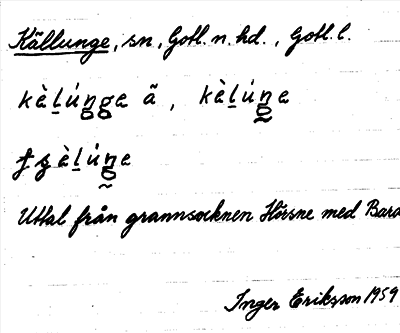 Källunge, sn, Gotl. n. hd., Gotl. l.
kèḻúŋga ã, kèḻúŋa
ɟʒèḻúŋa
Uttal från grannsocknen Hörsne med Bara
Inger Eriksson 1959